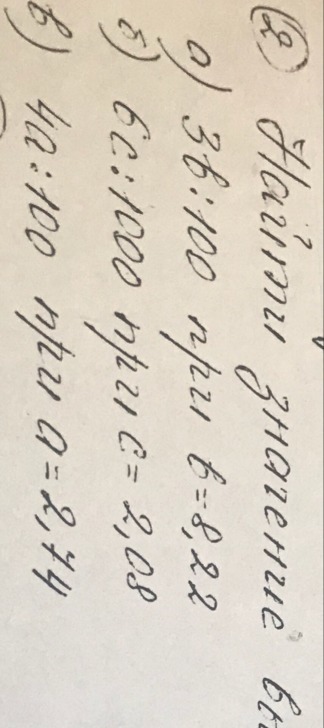 ② Найти значение
а) 3в:100 при в=8,22
б) 6с:1000 при с=2,08
в) 4а:100 при а=2,74